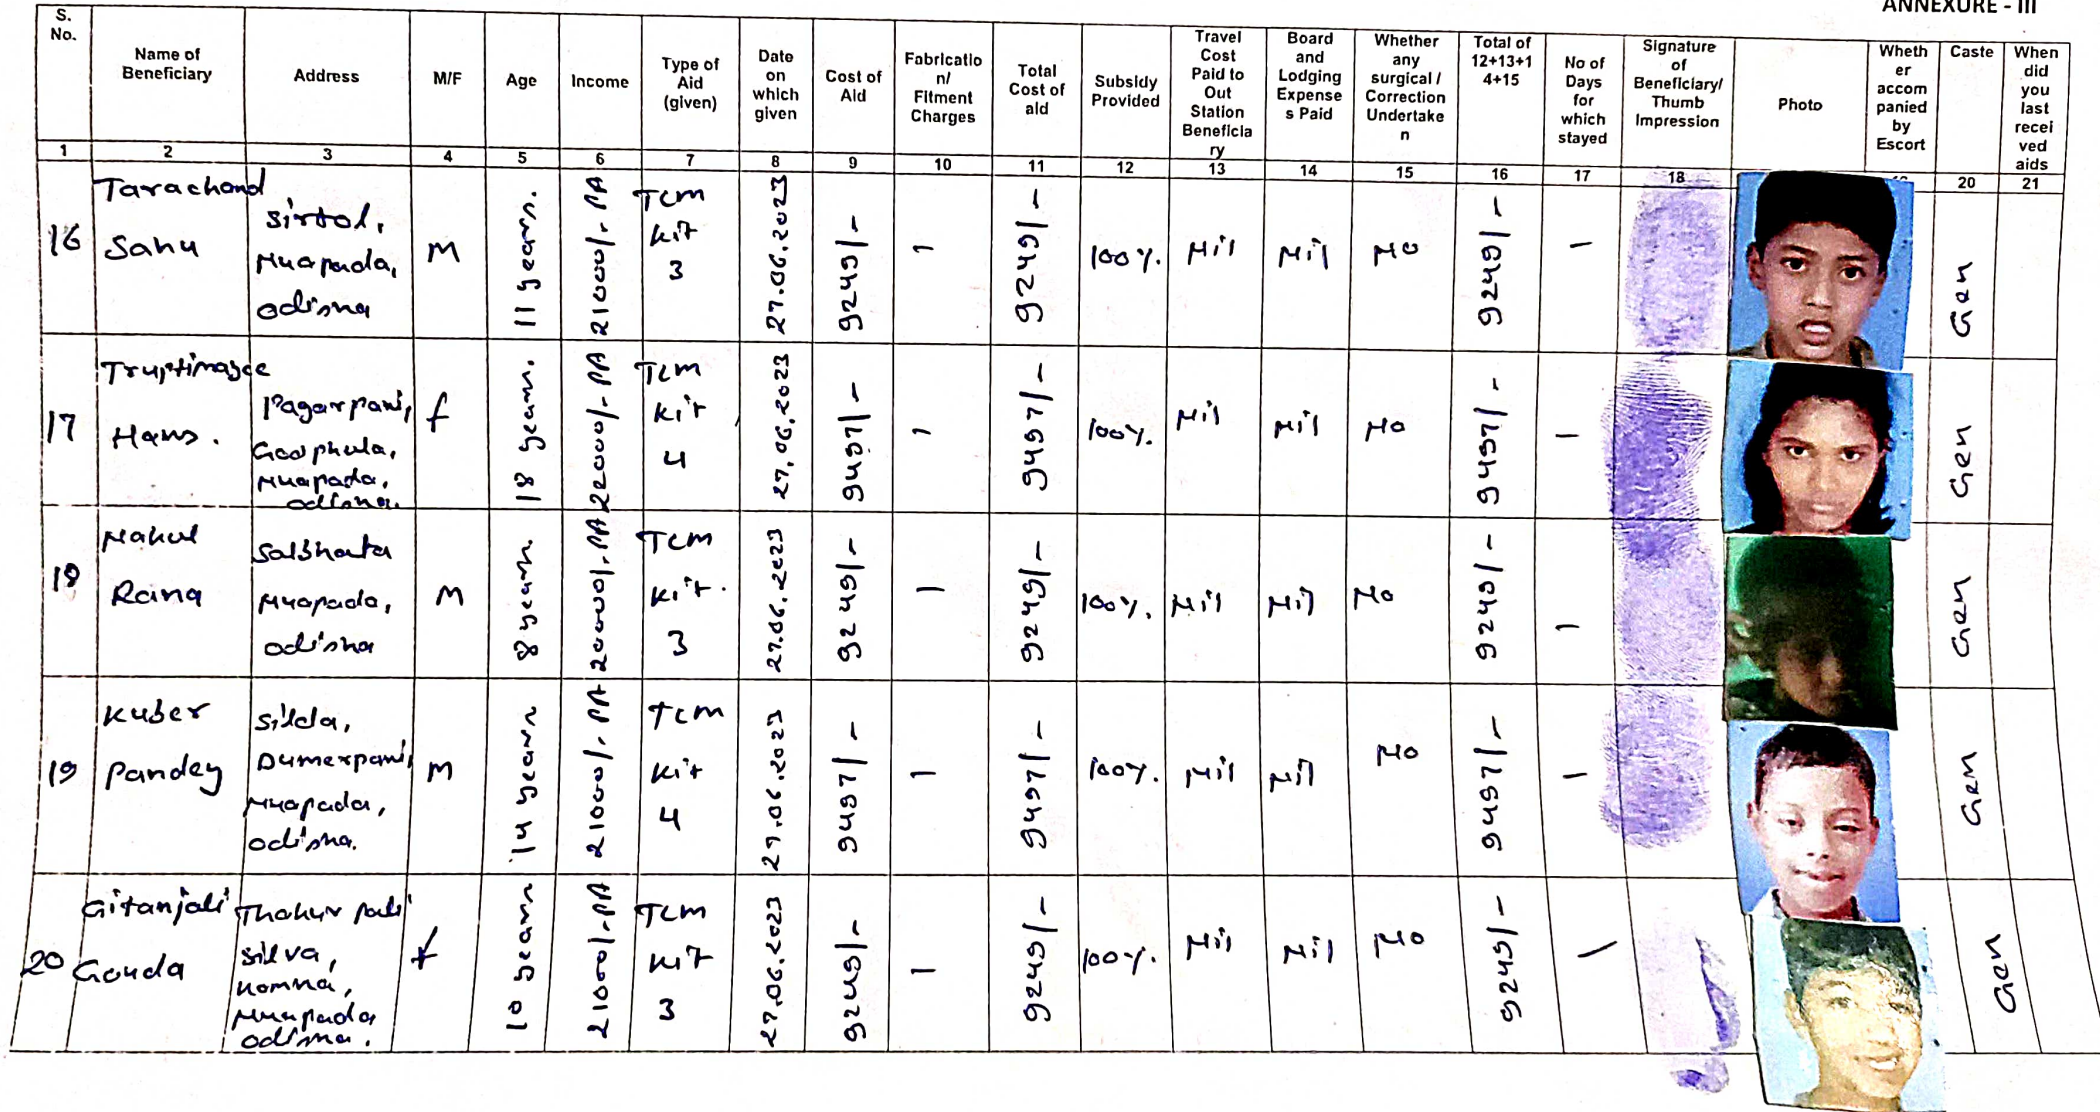 ANNEXURE - III
S. No. Name of Beneficiary Address M/F Age Income Type of Aid (given) Date on which given Cost of Aid Fabrication/ Fitment Charges Total Cost of aid Subsidy Provided Travel Cost Paid to Out Station Beneficiary Board and Lodging Expenses Paid Whether any surgical / Correction Undertaken Total of 12+13+14+15 No of Days for which stayed Signature of Beneficiary/ Thumb Impression Photo Whether accompanied by Escort Caste When did you last received aids
1 2 3 4 5 6 7 8 9 10 11 12 13 14 15 16 17 18 20 21
16 Tarachand Sahu Sirtol, Nuapada, odisha M 11 years. 21000/- PA TLM Kit 3 27.06.2023 9249/- - 9249/- 100%. Nil Nil No 9249/- - Gen
17 Truptimayee Hans. Pagarpani, Godphula, Nuapada, odisha. f 18 years. 22000/- PA TLM Kit 4 27.06.2023 9497/- - 9497/- 100%. Nil Nil No 9497/- - Gen
18 Nakul Rana Salbhata Nuapada, odisha M 8 years. 20000/- PA TLM Kit. 3 27.06.2023 9249/- - 9249/- 100%. Nil Nil No 9249/- - Gen
19 Kuber Pandey Silda, Dumerpani, Nuapada, odisha. M 14 years 21000/- PA TLM Kit 4 27.06.2023 9497/- - 9497/- 100%. Nil Nil No 9497/- - Gen
20 Gitanjali Gouda Thakur pali Silva, Komna, Nuapada odisha. f 10 years 21000/- PA TLM Kit 3 27.06.2023 9249/- - 9249/- 100%. Nil Nil No 9249/- - Gen